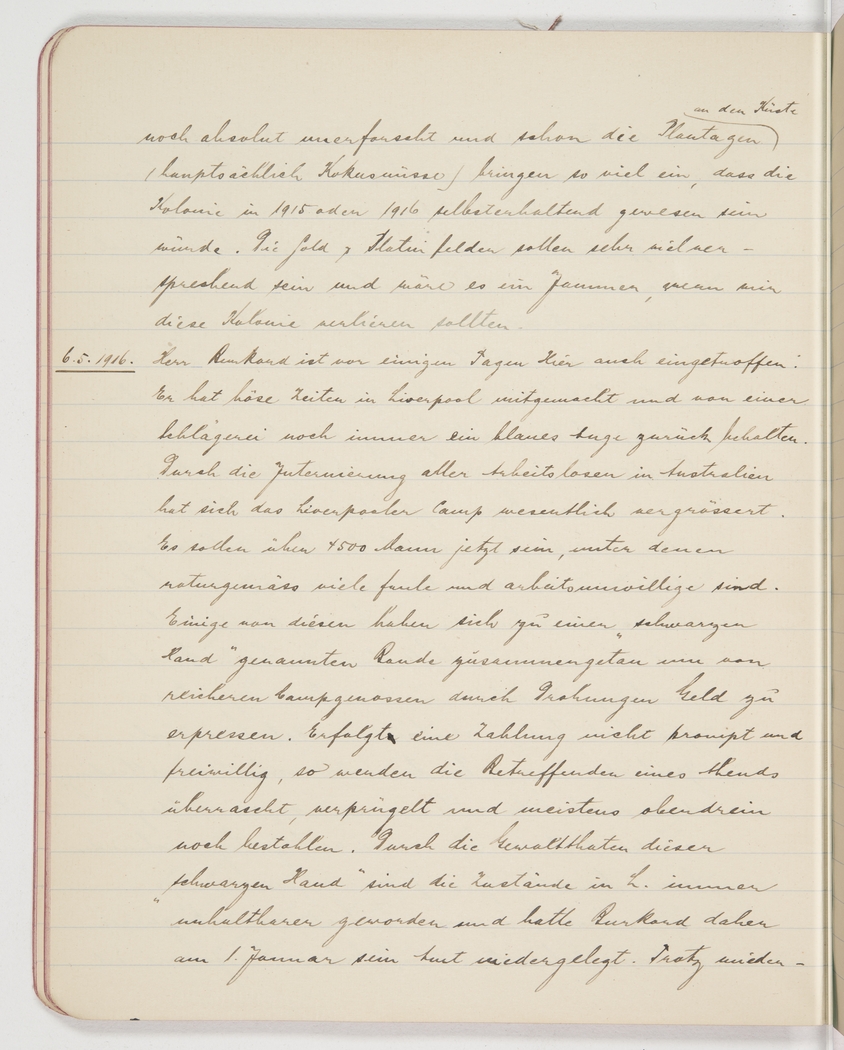 an den Küste
noch absolut unerforscht und schon die Plantagen
(hauptsächlich Kokusnüsse) bringen so viel ein, dass die
Kolonie in 1915 oder 1916 selbsterhaltend gewesen sein
würde. Die Gold & Platinfelder sollen sehr vielver-
sprechend sein und wäre es ein Jammer, wenn wir
diese Kolonie verlieren sollten.
6.5.1916. Herr Burkard ist vor einigen Tagen hier auch eingetroffen:
Er hat böse Zeiten in Liverpool mitgemacht und von einer
Schlägerei noch immer ein blaues Auge zurück behalten.
Durch die Internierung aller Arbeitslosen in Australien
hat sich das Liverpooler Camp wesentlich vergrössert.
Es sollen über 4500 Mann jetzt sein, unter denen
naturgemäss viele faule und arbeitsunwillige sind.
Einige von diesen haben sich zu einer "schwarzen
Hand" genannten Bande zusammengetan um von
reicheren Campgenossen durch Drohungen Geld zu
erpressen. Erfolgt eine Zahlung nicht prompt und
freiwillig, so werden die Betreffenden eines Abends
überrascht, verprügelt und meistens obendrein
noch bestohlen. Durch die Gewaltthaten dieser
"schwarzen Hand" sind die Zustände in L. immer
unhaltbarer geworden und hatte Burkard daher
am 1. Januar sein Amt niedergelegt. Trotz wieder-